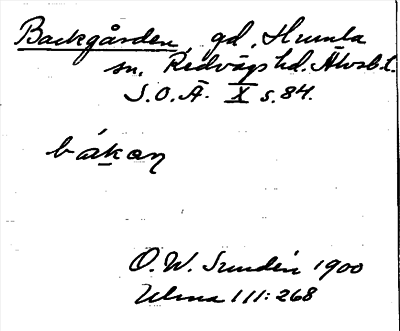 Backgården, gd, Humla
sn. Redvägs hd. Älvsb. l.
S.O.Ä. X s. 84.
båkan
O. W. Sundén 1900
Ulma 111:268